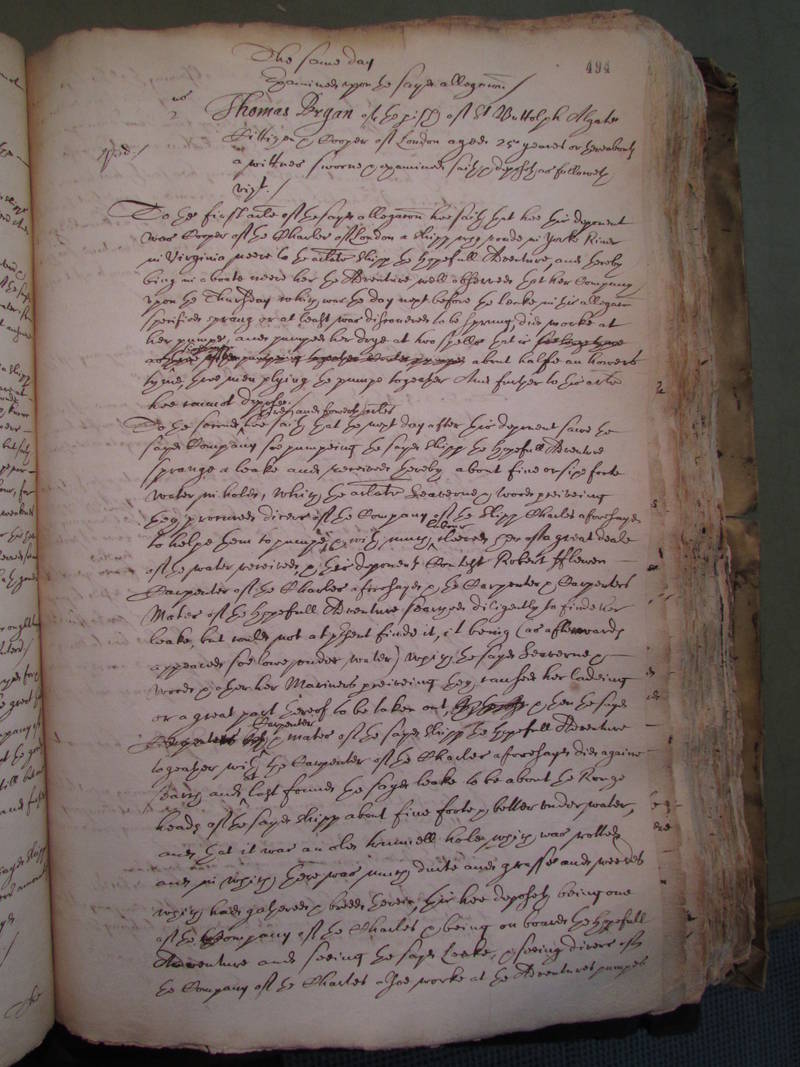 The same day
Examined upon the sayd allegation /
494
Thomas Bryan of the pish of St Buttolph Algate
Cittizen & Cooper of London aged 25 yeares or thereabouts
a wittnes sworne & examined saith & deposeth as followeth
vizt. /
To the first arlê of the sayd allegation hee saith that hee this deponent
was Cooper of the Charles of London a shipp wch roade in Yorke River
in Virginia neere to the arlate shipp the Hopefull Adventure, and thereby
being in a boate neere her the Adventure well observed that her Company
upon the Thursday which was the day next before the leake in this allegation
specified sprang or at least was discovered to be sprung, did worke at
her pumpe, and pumped her drye at two spells that is
about halfe an howers
tyme, three men plying the pumpe together And further to this arlê
hee cannot depose /
To the second, third, and fowerth arles hee saith that the next day after this deponent sawe the
sayd Company soe pumpeing the sayd shipp the Hopefull Adventure
sprange a leake and received thereby about five or six foote
water in hold, which the arlate Seaverne & Woods perceiving
they procured divers of the Company of the shipp Charles aforesayd
to helpe them to pumpe & with much labour cleered her of a great deale
of the water received, & this deponents Contest Robert fflewen
Carpenter of the Charles aforesayd & the Carpenter & Carpenters
Mates of the Hopefull Adventure searched diligently to finde the
leake, but could not at psent finde it, it being (as afterwards
appeared soe lowe under water) which the sayd Seaverne &
Woods & other her Mariners perceiving they caused her ladeing
or a great part thereof to be taken out, & then the sayd
Carpenter & mates of the sayd shipp the Hopefull Adventure
togeather with the Carpenter of the Charles aforesayd did againe
search and at last found the sayd leake to be about the Runge
heads of the sayd shipp about five foote & better under water,
and that it was an old trunnell hole which was rotted
and in which there was much durte and grasse and weeds
which had gathered & breed therein, this hee deposeth being one
of the Company of the Charles & being on board the Hopefull
Adventure and seeing the sayd Leake, & seeing divers of
the Company of the Charles alsoe worke at the Adventures pumpes